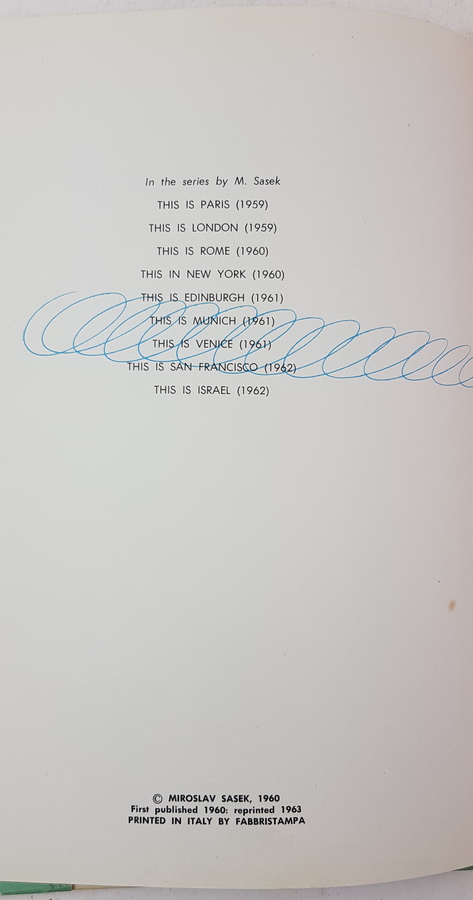 In the series by M. Sasek
THIS IS PARIS (1959)
THIS IS LONDON (1959)
THIS IS ROME (1960)
THIS IN NEW YORK (1960)
THIS IS EDINBURGH (1961)
THIS IS MUNICH (1961)
THIS IS VENICE (1961)
THIS IS SAN FRANCISCO (1962)
THIS IS ISRAEL (1962)
© MIROSLAV SASEK, 1960
First published 1960: reprinted 1963
PRINTED IN ITALY BY FABBRISTAMPA